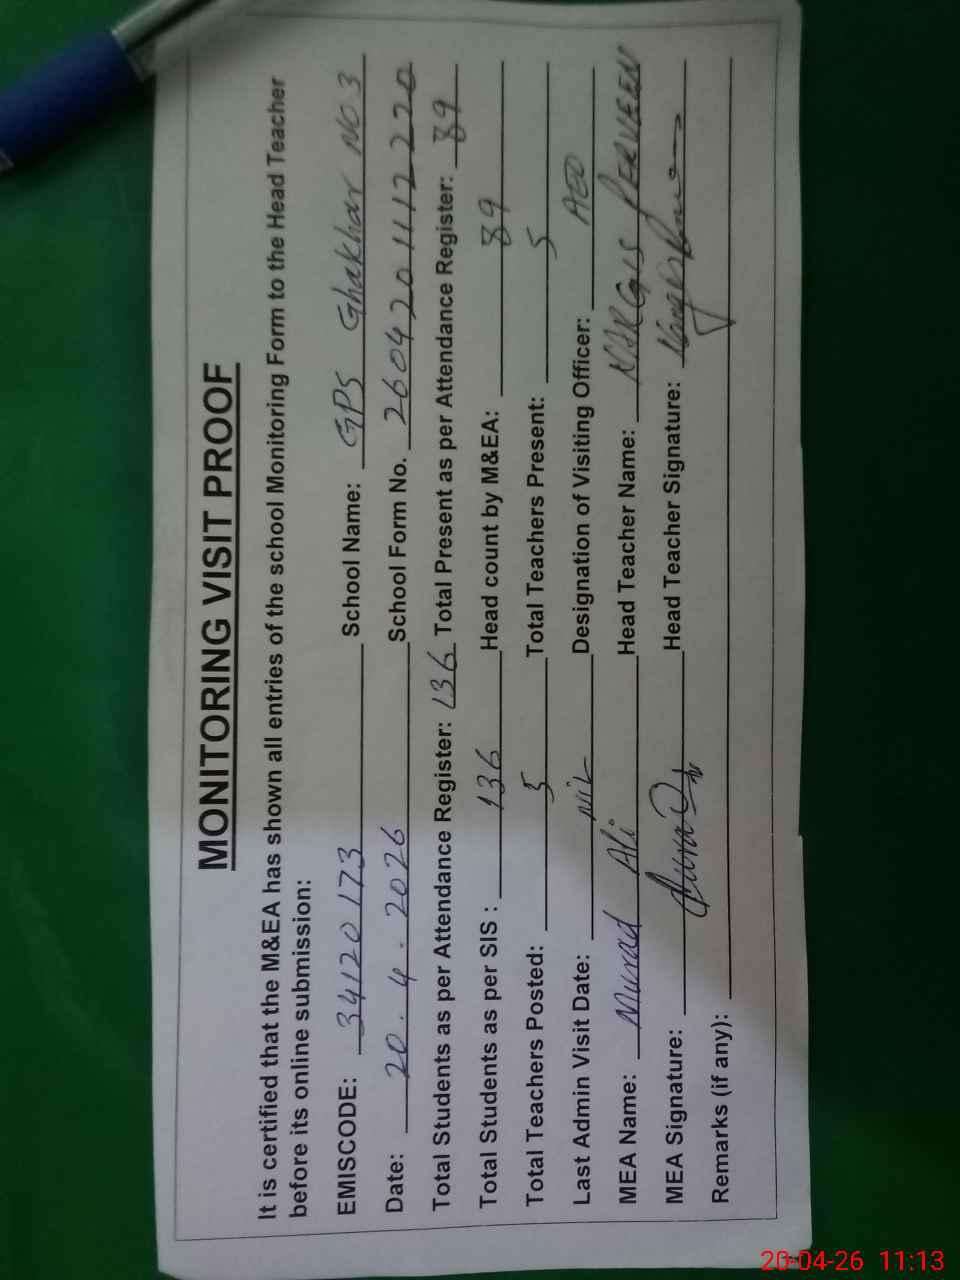 MONITORING VISIT PROOF
It is certified that the M&EA has shown all entries of the school Monitoring Form to the Head Teacher
before its online submission:
EMISCODE: 34120173 School Name: GPS Ghakhar NO 3
Date: 20.4.2026 School Form No. 2604201112220
Total Students as per Attendance Register: 136 Total Present as per Attendance Register: 89
Total Students as per SIS : 136 Head count by M&EA: 89
Total Teachers Posted: 5 Total Teachers Present: 5
Last Admin Visit Date: NIL Designation of Visiting Officer: AEO
MEA Name: Murad Ali Head Teacher Name: NARGIS PERVEEN
MEA Signature: Head Teacher Signature:
Remarks (if any):
20-04-26 11:13